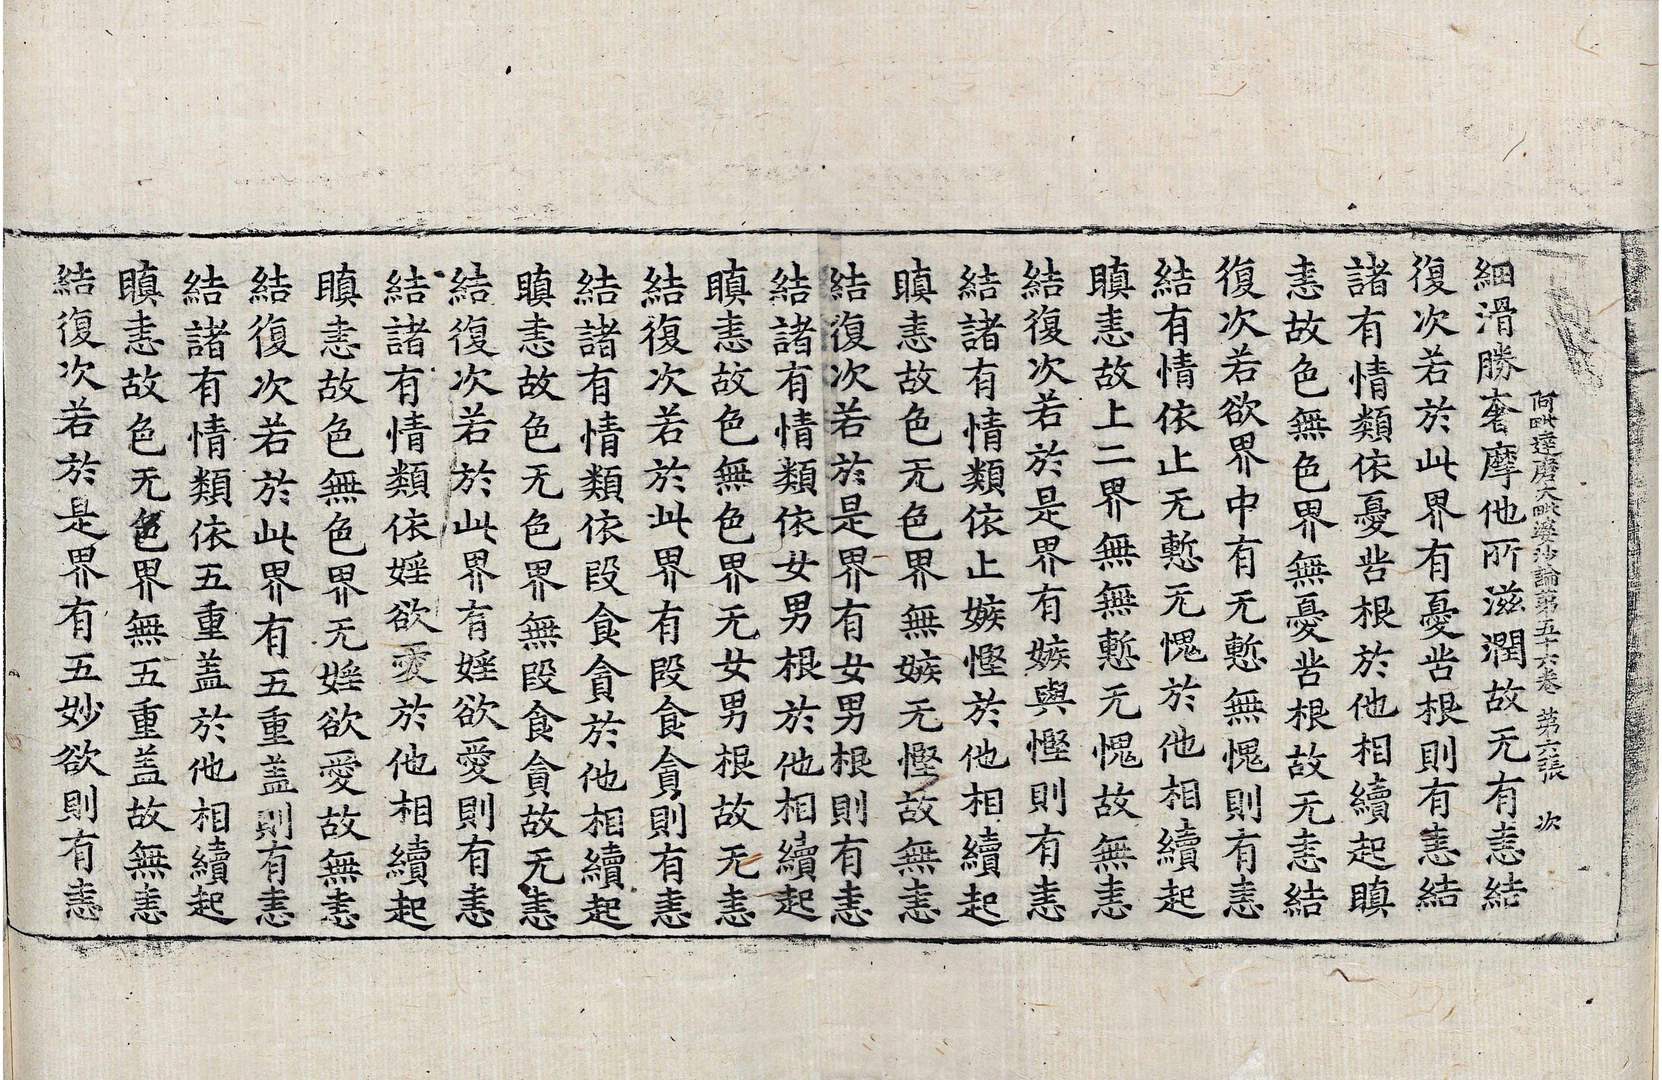 阿毗達磨大毗婆沙論第五十六卷 第六張 次
細滑勝奢摩他所滋潤故无有恚結
復次若於此界有憂苦根則有恚結
諸有情類依憂苦根於他相續起瞋
恚故色無色界無憂苦根故无恚結
復次若欲界中有无慙無愧則有恚
結有情依止无慙无愧於他相續起
瞋恚故上二界無無慙无愧故無恚
結復次若於是界有嫉與慳則有恚
結諸有情類依止嫉慳於他相續起
瞋恚故色无色界無嫉无慳故無恚
結復次若於是界有女男根則有恚
結諸有情類依女男根於他相續起
瞋恚故色無色界无女男根故无恚
結復次若於此界有段食貪則有恚
結諸有情類依段食貪於他相續起
瞋恚故色无色界無段食貪故无恚
結復次若於此界有婬欲愛則有恚
結諸有情類依婬欲愛於他相續起
瞋恚故色無色界无婬欲愛故無恚
結復次若於此界有五重蓋則有恚
結諸有情類依五重蓋於他相續起
瞋恚故色无色界無五重蓋故無恚
結復次若於是界有五妙欲則有恚